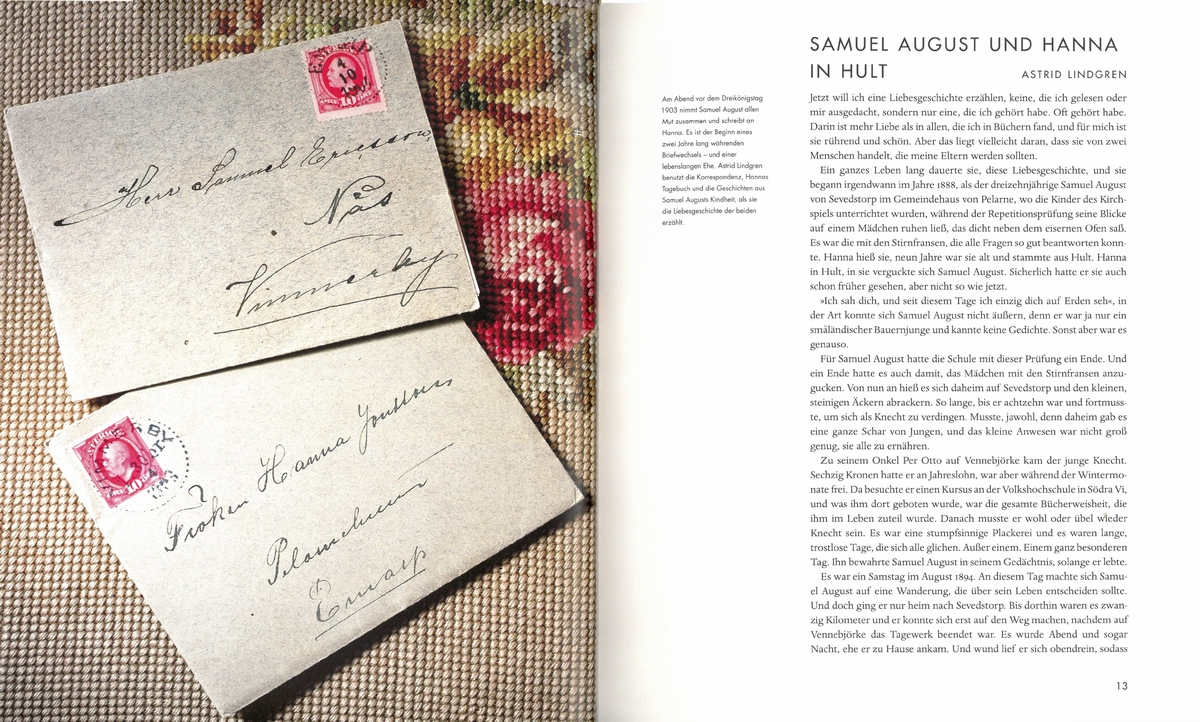 Herr Samuel Ericsson,
Näs
Vimmerby
SVERIGE
Fröken Hanna Jonsson
Pelarnehult
SAMUEL AUGUST UND HANNA
IN HULT
ASTRID LINDGREN
Am Abend vor dem Dreikönigstag
1903 nimmt Samuel August allen
Mut zusammen und schreibt an
Hanna. Es ist der Beginn eines
zwei Jahre lang währenden
Briefwechsels – und einer
lebenslangen Ehe. Astrid Lindgren
benutzt die Korrespondenz, Hannas
Tagebuch und die Geschichten aus
Samuel Augusts Kindheit, als sie
die Liebesgeschichte der beiden
erzählt.
Jetzt will ich eine Liebesgeschichte erzählen, keine, die ich gelesen oder
mir ausgedacht, sondern nur eine, die ich gehört habe. Oft gehört habe.
Darin ist mehr Liebe als in allen, die ich in Büchern fand, und für mich ist
sie rührend und schön. Aber das liegt vielleicht daran, dass sie von zwei
Menschen handelt, die meine Eltern werden sollten.
Ein ganzes Leben lang dauerte sie, diese Liebesgeschichte, und sie
begann irgendwann im Jahre 1888, als der dreizehnjährige Samuel August
von Sevedstorp im Gemeindehaus von Pelarne, wo die Kinder des Kirch-
spiels unterrichtet wurden, während der Repetitionsprüfung seine Blicke
auf einem Mädchen ruhen ließ, das dicht neben dem eisernen Ofen saß.
Es war die mit den Stirnfransen, die alle Fragen so gut beantworten konn-
te. Hanna hieß sie, neun Jahre war sie alt und stammte aus Hult. Hanna
in Hult, in sie verguckte sich Samuel August. Sicherlich hatte er sie auch
schon früher gesehen, aber nicht so wie jetzt.
»Ich sah dich, und seit diesem Tage ich einzig dich auf Erden seh«, in
der Art konnte sich Samuel August nicht äußern, denn er war ja nur ein
småländischer Bauernjunge und kannte keine Gedichte. Sonst aber war es
genauso.
Für Samuel August hatte die Schule mit dieser Prüfung ein Ende. Und
ein Ende hatte es auch damit, das Mädchen mit den Stirnfransen anzu-
gucken. Von nun an hieß es sich daheim auf Sevedstorp und den kleinen,
steinigen Äckern abrackern. So lange, bis er achtzehn war und fortmuss-
te, um sich als Knecht zu verdingen. Musste, jawohl, denn daheim gab es
eine ganze Schar von Jungen, und das kleine Anwesen war nicht groß
genug, sie alle zu ernähren.
Zu seinem Onkel Per Otto auf Vennebjörke kam der junge Knecht.
Sechzig Kronen hatte er an Jahreslohn, war aber während der Wintermo-
nate frei. Da besuchte er einen Kursus an der Volkshochschule in Södra Vi,
und was ihm dort geboten wurde, war die gesamte Bücherweisheit, die
ihm im Leben zuteil wurde. Danach musste er wohl oder übel wieder
Knecht sein. Es war eine stumpfsinnige Plackerei und es waren lange,
trostlose Tage, die sich alle glichen. Außer einem. Einem ganz besonderen
Tag. Ihn bewahrte Samuel August in seinem Gedächtnis, solange er lebte.
Es war ein Samstag im August 1894. An diesem Tag machte sich Samu-
el August auf eine Wanderung, die über sein Leben entscheiden sollte.
Und doch ging er nur heim nach Sevedstorp. Bis dorthin waren es zwan-
zig Kilometer und er konnte sich erst auf den Weg machen, nachdem auf
Vennebjörke das Tagewerk beendet war. Es wurde Abend und sogar
Nacht, ehe er zu Hause ankam. Und wund lief er sich obendrein, sodass
13